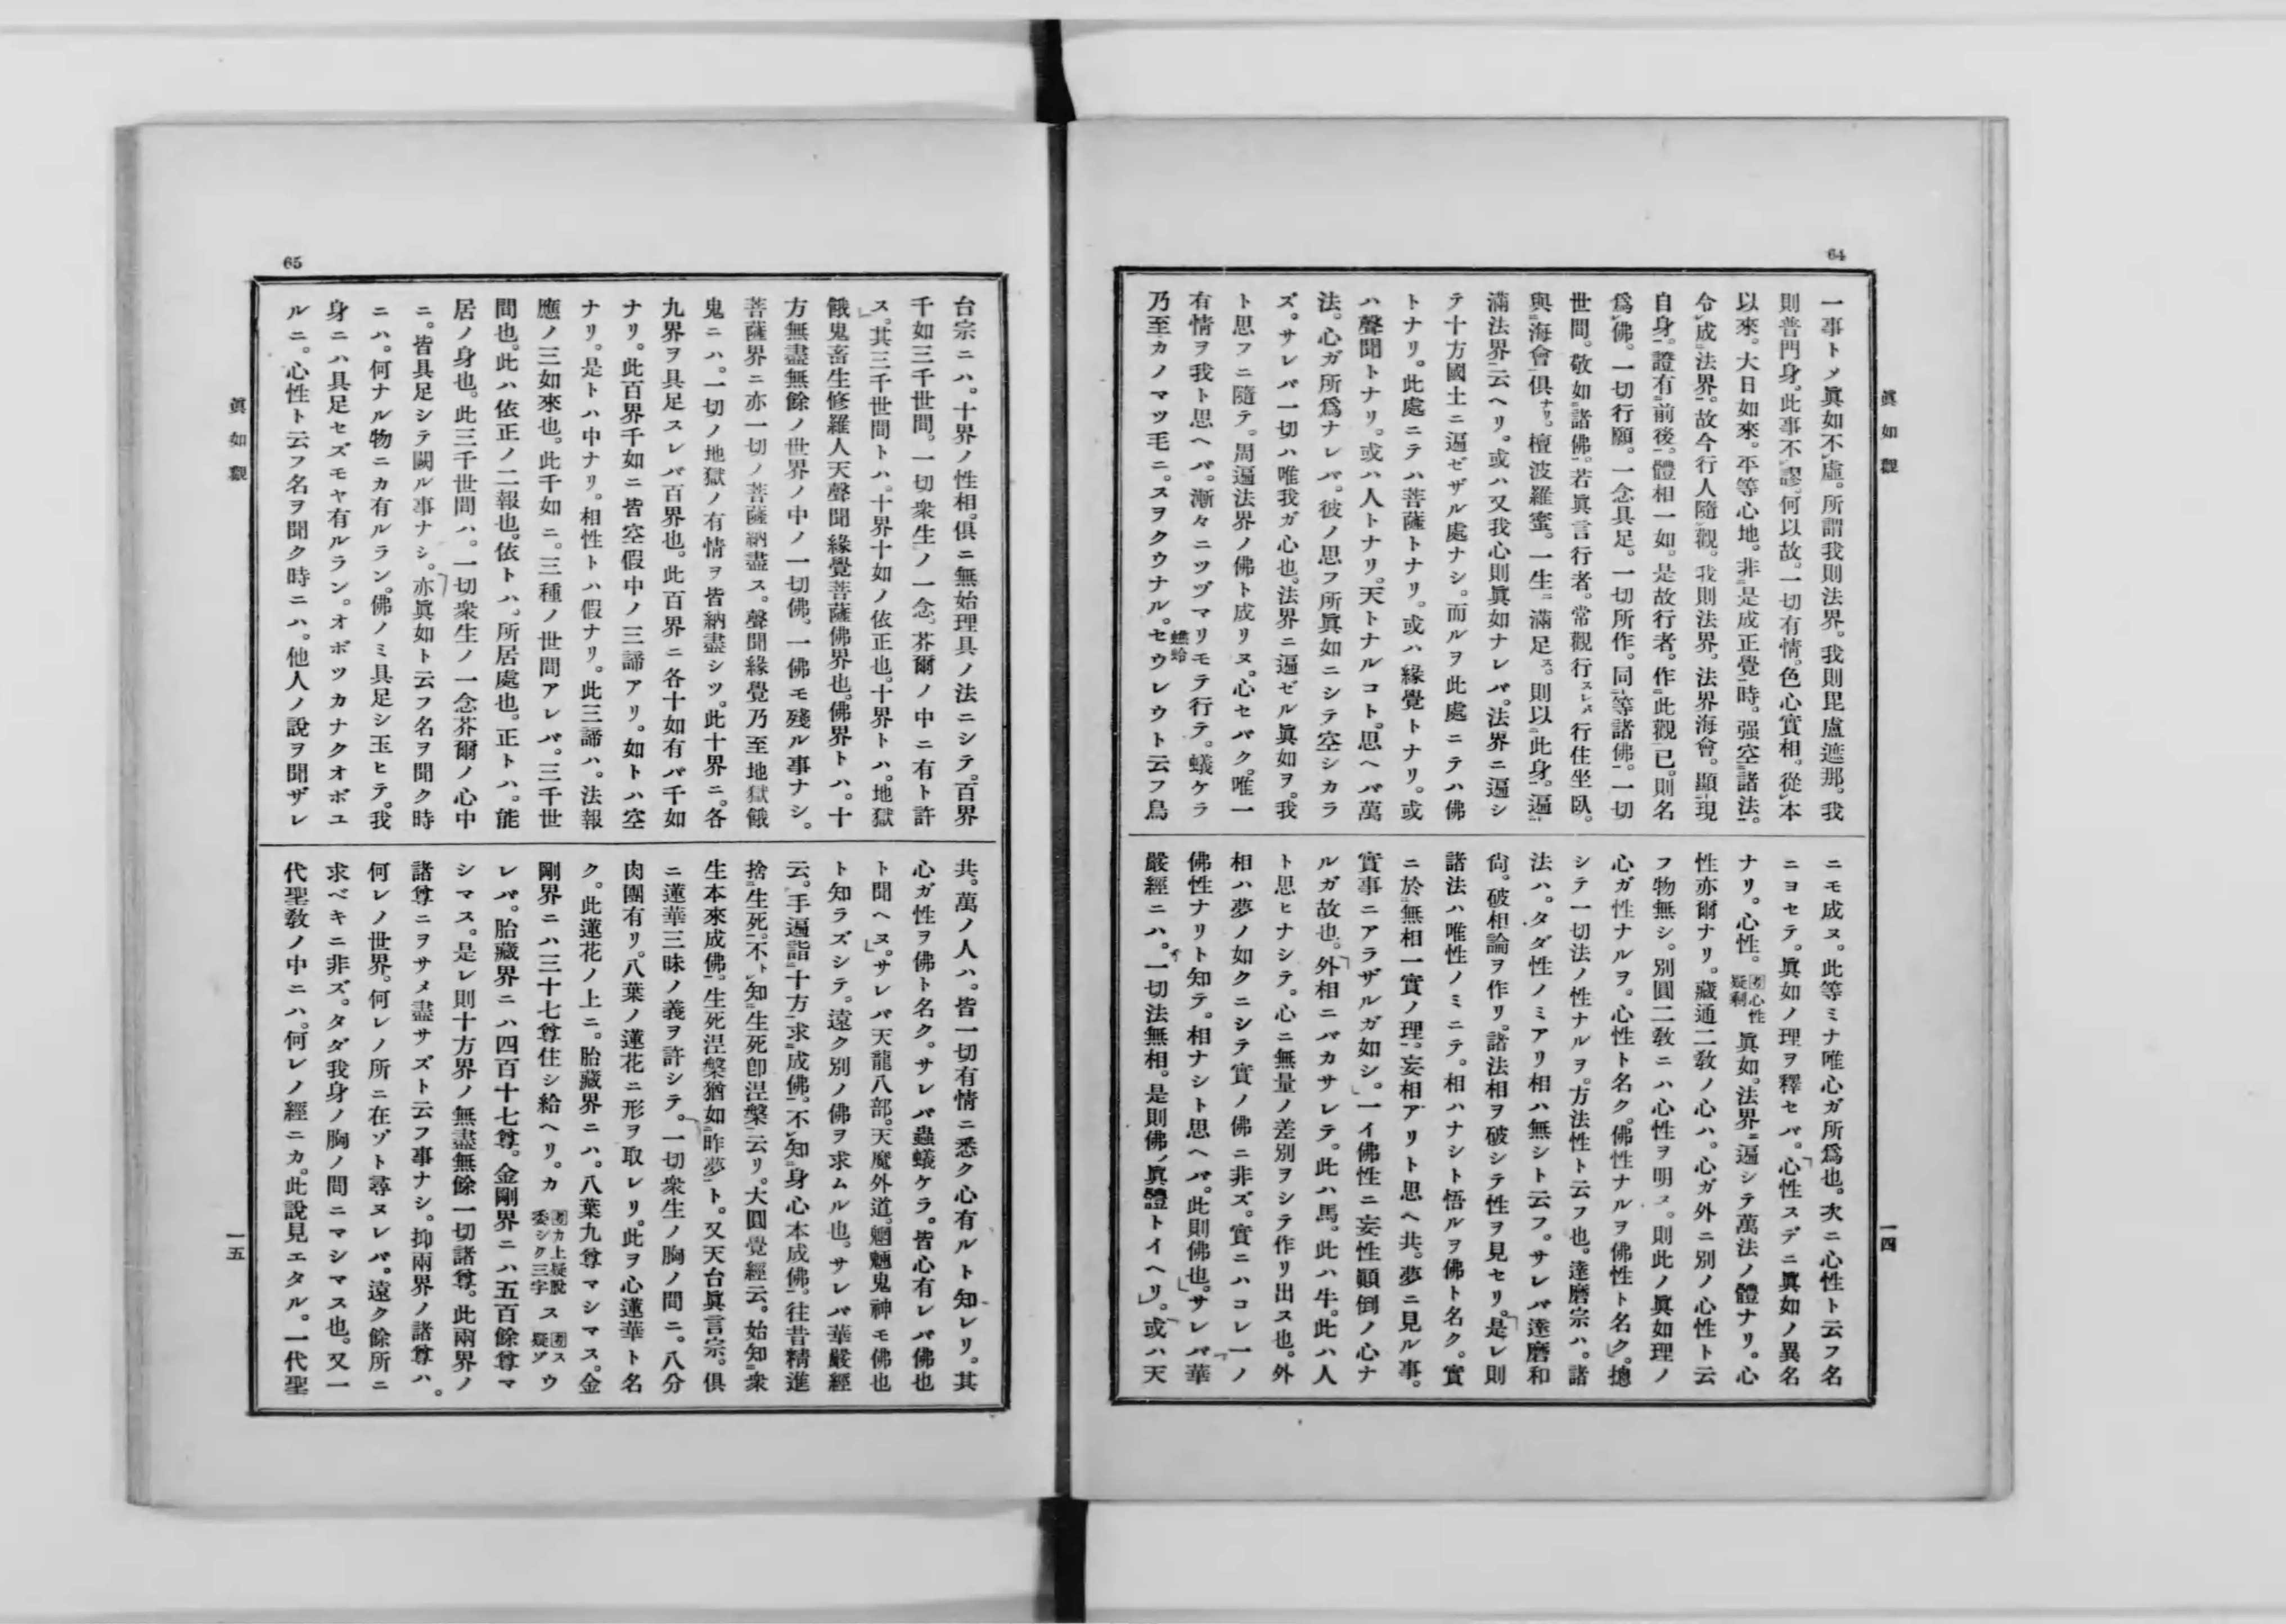 64
眞如觀
一事トメ眞如不虛。所謂我則法界。我則毘盧遮那。我
則普門身。此事不謬。何以故。一切有情。色心實相。從本
以來。大日如來。平等心地。非是成正覺時。强空諸法。
令成法界。故今行人隨觀。我則法界。法界海會。顯現
自身。證有前後。體相一如。是故行者。作此觀已。則名
爲佛。一切行願。一念具足。一切所作。同等諸佛。一切
世間。敬如諸佛。若眞言行者。常觀行スレバ行住坐臥。
與海會俱ナリ。檀波羅蜜。一生ニ滿足ス。則以此身。遍
滿法界云ヘリ。或ハ又我心則眞如ナレバ。法界ニ遍シ
テ十方國土ニ遍ゼザル處ナシ。而ルヲ此處ニテハ佛
トナリ。此處ニテハ菩薩トナリ。或ハ緣覺トナリ。或
ハ聲聞トナリ。或ハ人トナリ。天トナルコト。思ヘバ萬
法。心ガ所爲ナレバ。彼ノ思フ所眞如ニシテ空シカラ
ズ。サレバ一切ハ唯我ガ心也。法界ニ遍ゼル眞如ヲ。我
ト思フニ隨テ。周遍法界ノ佛ト成リヌ。心セバク。唯一
有情ヲ我ト思ヘバ。漸々ニツヅマリモテ行テ。蟻ケラ
乃至カノマツ毛ニ。スヲクウナル。セウレウト云フ鳥
ニモ成ヌ。此等ミナ唯心ガ所爲也。次ニ心性ト云フ名
ニヨセテ。眞如ノ理ヲ釋セバ。心性スデニ眞如ノ異名
ナリ。心性。心性疑剩眞如。法界ニ遍シテ萬法ノ體ナリ。心
性亦爾ナリ。藏通二敎ノ心ハ。心ガ外ニ別ノ心性ト云
フ物無シ。別圓二敎ニハ心性ヲ明ヌ。則此ノ眞如理ノ
心ガ性ナルヲ。心性ト名ク。佛性ナルヲ佛性ト名ク。摠
シテ一切法ノ性ナルヲ。方法性ト云フ也。達磨宗ハ。諸
法ハ。タダ性ノミアリ相ハ無シト云フ。サレバ達磨和
尙。破相論ヲ作リ。諸法相ヲ破シテ性ヲ見セリ。是レ則
諸法ハ唯性ノミニテ。相ハナシト悟ルヲ佛ト名ク。實
ニ於無相一實ノ理。妄相アリト思ヘ共。夢ニ見ル事。
實事ニアラザルガ如シ。一イ佛性ニ妄性顚倒ノ心ナ
ルガ故也。外相ニバカサレテ。此ハ馬。此ハ牛。此ハ人
ト思ヒナシテ。心ニ無量ノ差別ヲシテ作リ出ス也。外
相ハ夢ノ如クニシテ實ノ佛ニ非ズ。實ニハコレ一ノ
佛性ナリト知テ。相ナシト思ヘバ。此則佛也。サレバ華
嚴經ニハ。一切法無相。是則佛ノ眞體トイヘリ。或ハ天
一四
65
眞如觀
台宗ニハ。十界ノ性相。俱ニ無始理具ノ法ニシテ。百界
千如三千世間。一切衆生ノ一念。芥爾ノ中ニ有ト許
ス。其三千世間トハ。十界十如ノ依正也。十界トハ。地獄
餓鬼畜生修羅人天聲聞緣覺菩薩佛界也。佛界トハ。十
方無盡無餘ノ世界ノ中ノ一切佛。一佛モ殘ル事ナシ。
菩薩界ニ亦一切ノ菩薩納盡ス。聲聞緣覺乃至地獄餓
鬼ニハ。一切ノ地獄ノ有情ヲ皆納盡シツ。此十界ニ。各
九界ヲ具足スレバ百界也。此百界ニ各十如有バ千如
ナリ。此百界千如ニ皆空假中ノ三諦アリ。如トハ空
ナリ。是トハ中ナリ。相性トハ假ナリ。此三諦ハ。法報
應ノ三如來也。此千如ニ。三種ノ世間アレバ。三千世
間也。此ハ依正ノ二報也。依トハ。所居處也。正トハ。能
居ノ身也。此三千世間ハ。一切衆生ノ一念芥爾ノ心中
ニ。皆具足シテ闕ル事ナシ。亦眞如ト云フ名ヲ聞ク時
ニハ。何ナル物ニカ有ルラン。佛ノミ具足シ玉ヒテ。我
身ニハ具足セズモヤ有ルラン。オボツカナクオボユ
ルニ。心性ト云フ名ヲ聞ク時ニハ。他人ノ說ヲ聞ザレ
共。萬ノ人ハ。皆一切有情ニ悉ク心有ルト知レリ。其
心ガ性ヲ佛ト名ク。サレバ蟲蟻ケラ。皆心有レバ佛也
ト聞ヘヌ。サレバ天龍八部。天魔外道。魍魎鬼神モ佛也
ト知ラズシテ。遠ク別ノ佛ヲ求ムル也。サレバ華嚴經
云。手遍詣十方求成佛。不知身心本成佛。往昔精進
捨生死。不ト知生死卽涅槃云リ。大圓覺經云。始知衆
生本來成佛。生死涅槃猶如昨夢ト。又天台眞言宗。俱
ニ蓮華三昧ノ義ヲ許シテ。一切衆生ノ胸ノ間ニ。八分
肉團有リ。八葉ノ蓮花ニ形ヲ取レリ。此ヲ心蓮華ト名
ク。此蓮花ノ上ニ。胎藏界ニハ。八葉九尊マシマス。金
剛界ニハ三十七尊住シ給ヘリ。カカ上疑脫委シク三字スス疑ヅウ
レバ。胎藏界ニハ四百十七尊。金剛界ニハ五百餘尊マ
シマス。是レ則十方界ノ無盡無餘一切諸尊。此兩界ノ
諸尊ニヲサメ盡サズト云フ事ナシ。抑兩界ノ諸尊ハ。
何レノ世界。何レノ所ニ在ゾト尋ヌレバ。遠ク餘所ニ
求ベキニ非ズ。タダ我身ノ胸ノ間ニマシマス也。又一
代聖敎ノ中ニハ。何レノ經ニカ。此說見エタル。一代聖
一五